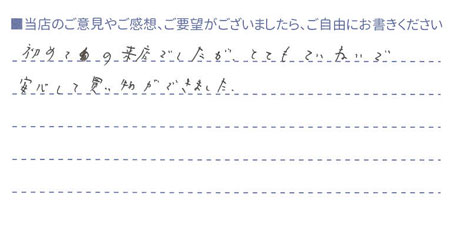 ■当店のご意見やご感想、ご要望がございましたら、ご自由にお書きください
初めての来店でしたが、とてもていねいで
安心して買い物ができました。